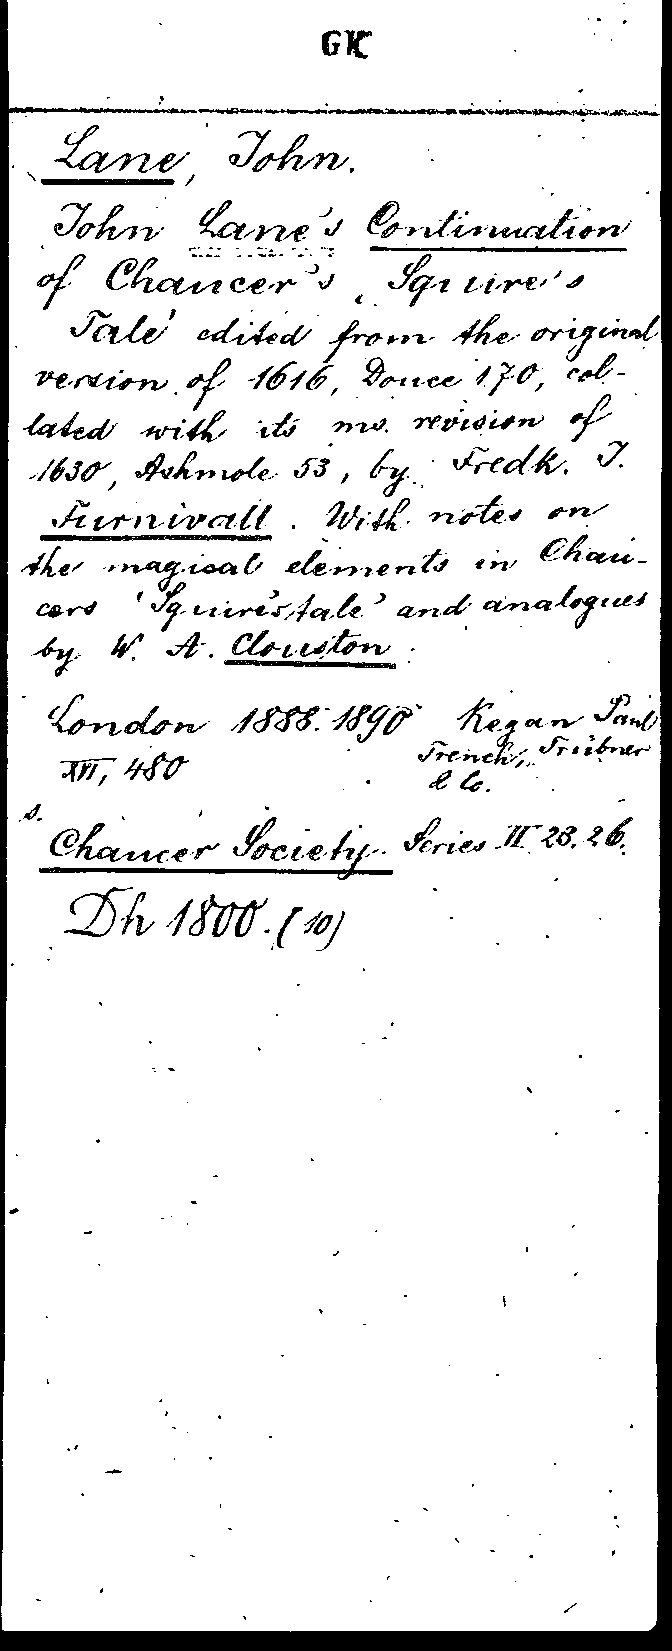 GK
Lane, John.
John Lane's Continuation
of Chaucer's 'Squire's
Tale' edited from the original
version of 1616, Douce 170, col-
lated with its ms. revision of
1630, Ashmole 53, by Fredk. J.
Furnivall. With notes on
the magical elements in Chau-
cers 'Squire's tale' and analogues
by W. A. Clouston.
London 1888. 1890 Kegan Paul
Trench, Trübner
XVI, 480
& Co.
s.
Chaucer Society. Series II 23. 26.
Dh 1800. (10)